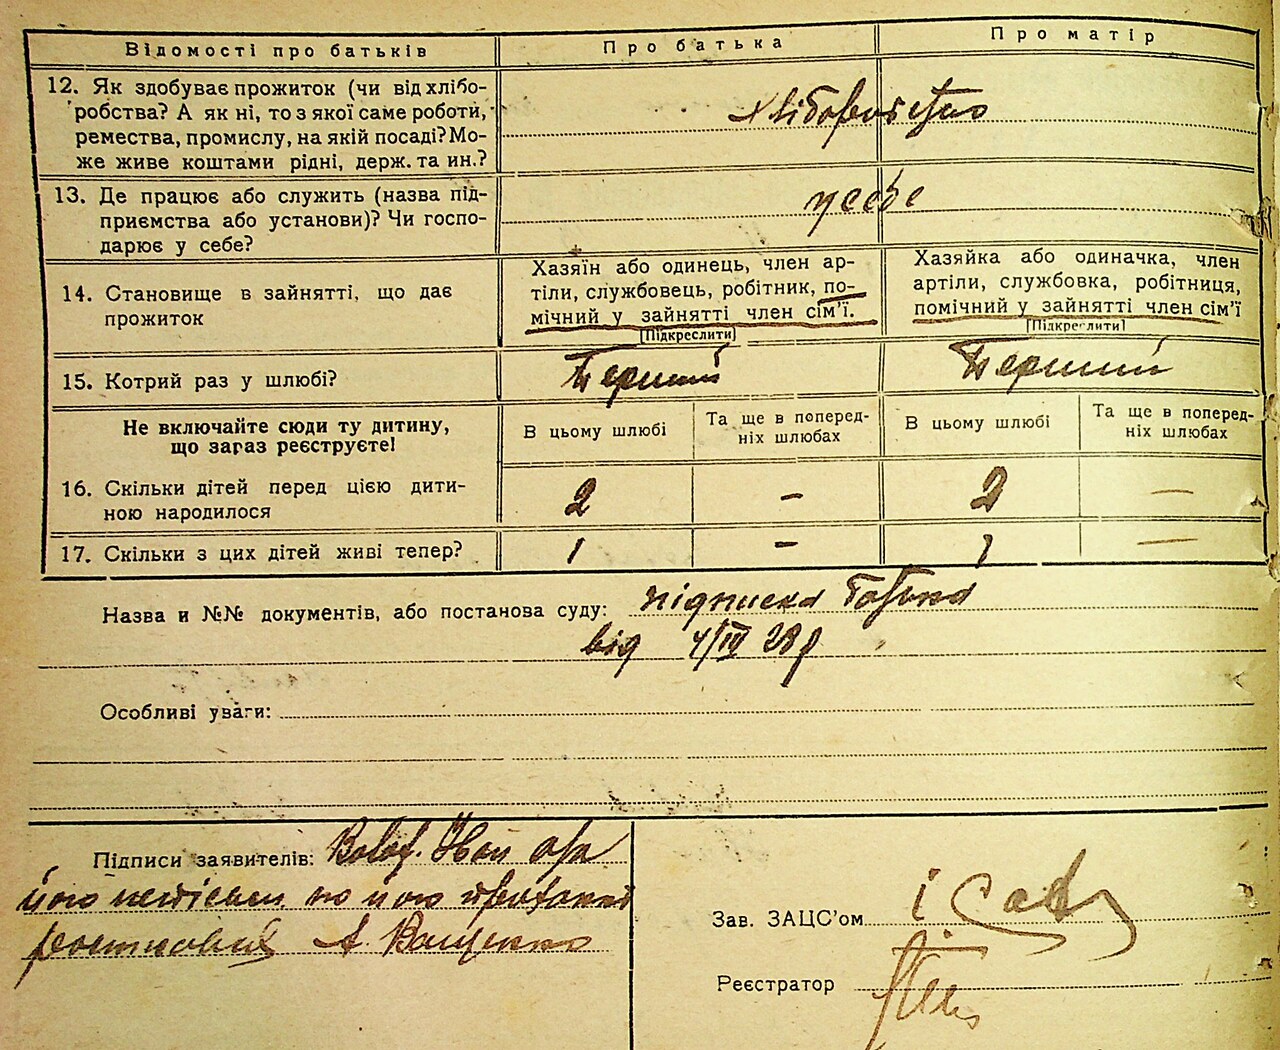 Відомості про батьків
Про батька
Про матір
12. Як здобуває прожиток (чи від хлібо-
робства? А як ні, то з якої саме роботи,
ремества, промислу, на якій посаді? Мо-
же живе коштами рідні, держ. та ин.?
Хліборобство
13. Де працює або служить (назва під-
приємства або установи)? Чи госпо-
дарює у себе?
у себе
14. Становище в зайнятті, що дає
прожиток
Хазяїн або одинець, член ар-
тіли, службовець, робітник, по-
мічний у зайнятті член сім’ї.
[Підкреслити]
Хазяйка або одиначка, член
артіли, службовка, робітниця,
помічний у зайнятті член сім’ї
[Підкреслити]
15. Котрий раз у шлюбі?
Перший
Перший
Не включайте сюди ту дитину,
що зараз реєструєте!
В цьому шлюбі
Та ще в поперед-
ніх шлюбах
В цьому шлюбі
Та ще в поперед-
ніх шлюбах
16. Скільки дітей перед цією дити-
ною народилося
2 - 2 —
17. Скільки з цих дітей живі тепер?
1 - 1 —
Назва и №№ документів, або постанова суду: підписка батька
від 4/IV 28 р
Особливі уваги:
Підписи заявителів:
його по його
А. Ващенко
Зав. ЗАЦС’ом
Реєстратор